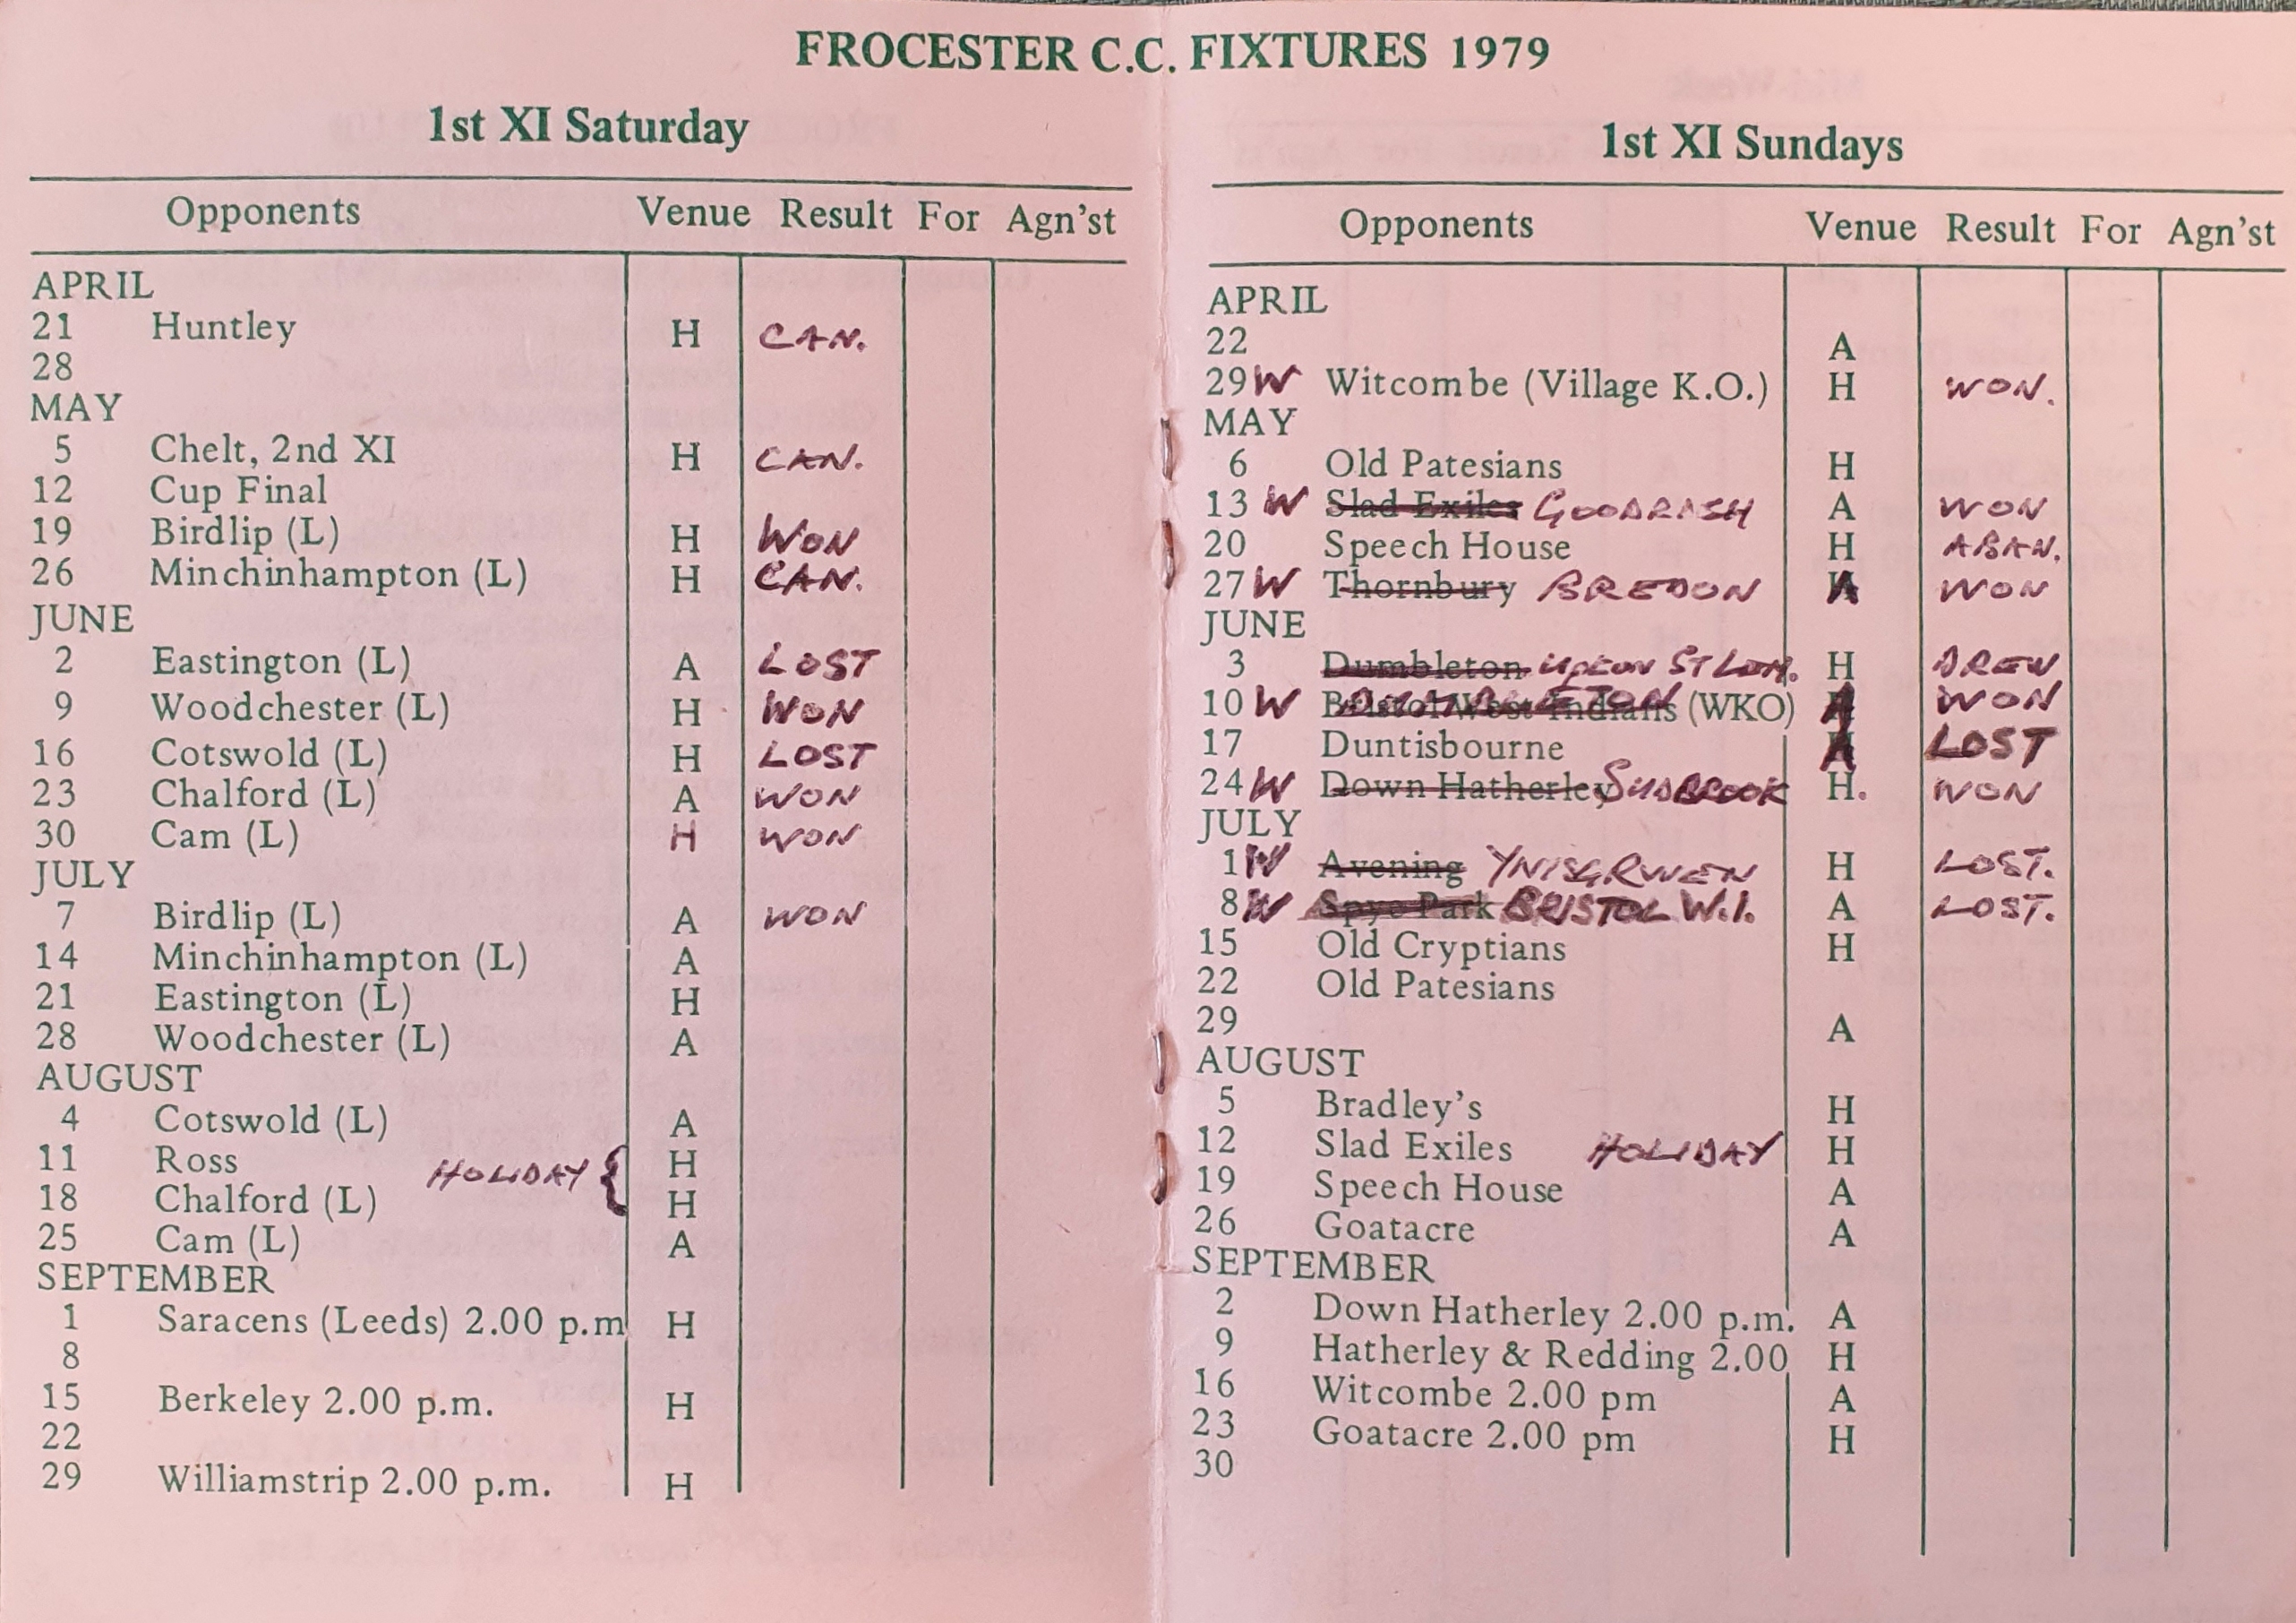 FROCESTER C.C. FIXTURES 1979
1st XI Saturday
Opponents Venue Result For Agn'st
APRIL
21 Huntley H CAN.
28
MAY
5 Chelt, 2nd XI H CAN.
12 Cup Final
19 Birdlip (L) H WON
26 Minchinhampton (L) H CAN.
JUNE
2 Eastington (L) A LOST
9 Woodchester (L) H WON
16 Cotswold (L) H LOST
23 Chalford (L) A WON
30 Cam (L) H WON
JULY
7 Birdlip (L) A WON
14 Minchinhampton (L) A
21 Eastington (L) H
28 Woodchester (L) A
AUGUST
4 Cotswold (L) A
11 Ross H
HOLIDAY {
18 Chalford (L) H
25 Cam (L) A
SEPTEMBER
1 Saracens (Leeds) 2.00 p.m H
8
15 Berkeley 2.00 p.m. H
22
29 Williamstrip 2.00 p.m. H
1st XI Sundays
Opponents Venue Result For Agn'st
APRIL
22 A
29 W Witcombe (Village K.O.) H WON.
MAY
6 Old Patesians H
13 W Slad Exiles GOODRASH A WON
20 Speech House H ABAN.
27 W Thornbury BREDON A WON
JUNE
3 Dumbleton UPTON ST LEN. H DREW
10 W Bristol West Indians (WKO) DUMBLETON A WON
17 Duntisbourne A LOST
24 W Down Hatherley SUDBROOK H. WON
JULY
1 W Avening YNISGRWEN H LOST.
8 W Spye Park BRISTOL W.I. A LOST.
15 Old Cryptians H
22 Old Patesians
29 A
AUGUST
5 Bradley's H
12 Slad Exiles HOLIDAY H
19 Speech House A
26 Goatacre A
SEPTEMBER
2 Down Hatherley 2.00 p.m. A
9 Hatherley & Redding 2.00 H
16 Witcombe 2.00 pm A
23 Goatacre 2.00 pm H
30